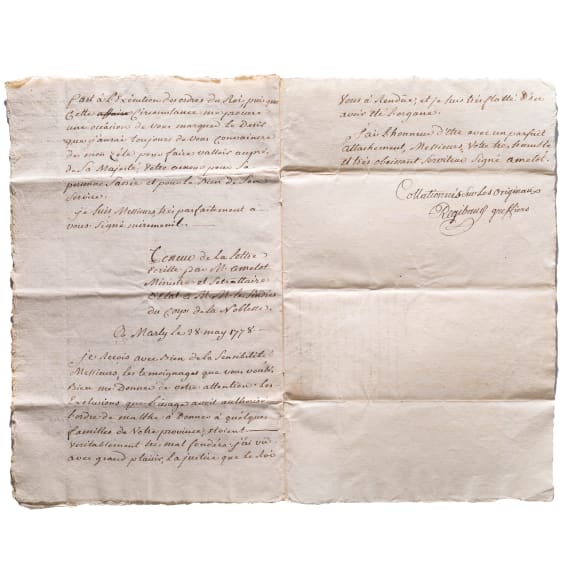 Part à L'Exécution des ordres du Roi, puis que
Cette affaire Circonstance me procure
une occasion de Vous marquer le Desir
que j'aurai toujours de Vous convaincre
de mon Zéle pour faire valloir auprés
de Sa Majesté, Votre amour pour Sa
personne Sacrée et pour le Bien de Son
Service.
je Suis Messieurs, trés parfaitement à
vous. Signé miromenil.
Teneur de la Lettre
Ecritte par Mr. amelot
Ministre et Secrettaire
d'Etat à MM. les Sindics
du Corps de la Noblesse
à Marly le 28 may 1778.
je Recois avec Bien de la Sensibilité
Messieurs, les temoignages que vous voulés
Bien me Donner de votre attention. Les
Exclusions que L'usage avoit authorisé
L'ordre de malthe à Donner à quelques
familles de Votre province, étoient
veritablement trés mal fondées. j'ai vu
avec grand plaisir, La justice que Le Roi
Vous à Rendüe, et je Suis trés flatté D'en
avoir été L'organe.
J'ai L'honneur d'Etre avec un parfait
attachement, Messieurs, Votre trés humble
et trés obeissant Serviteur Signé amelot.
Collationnés Sur Les Originaux
greffier